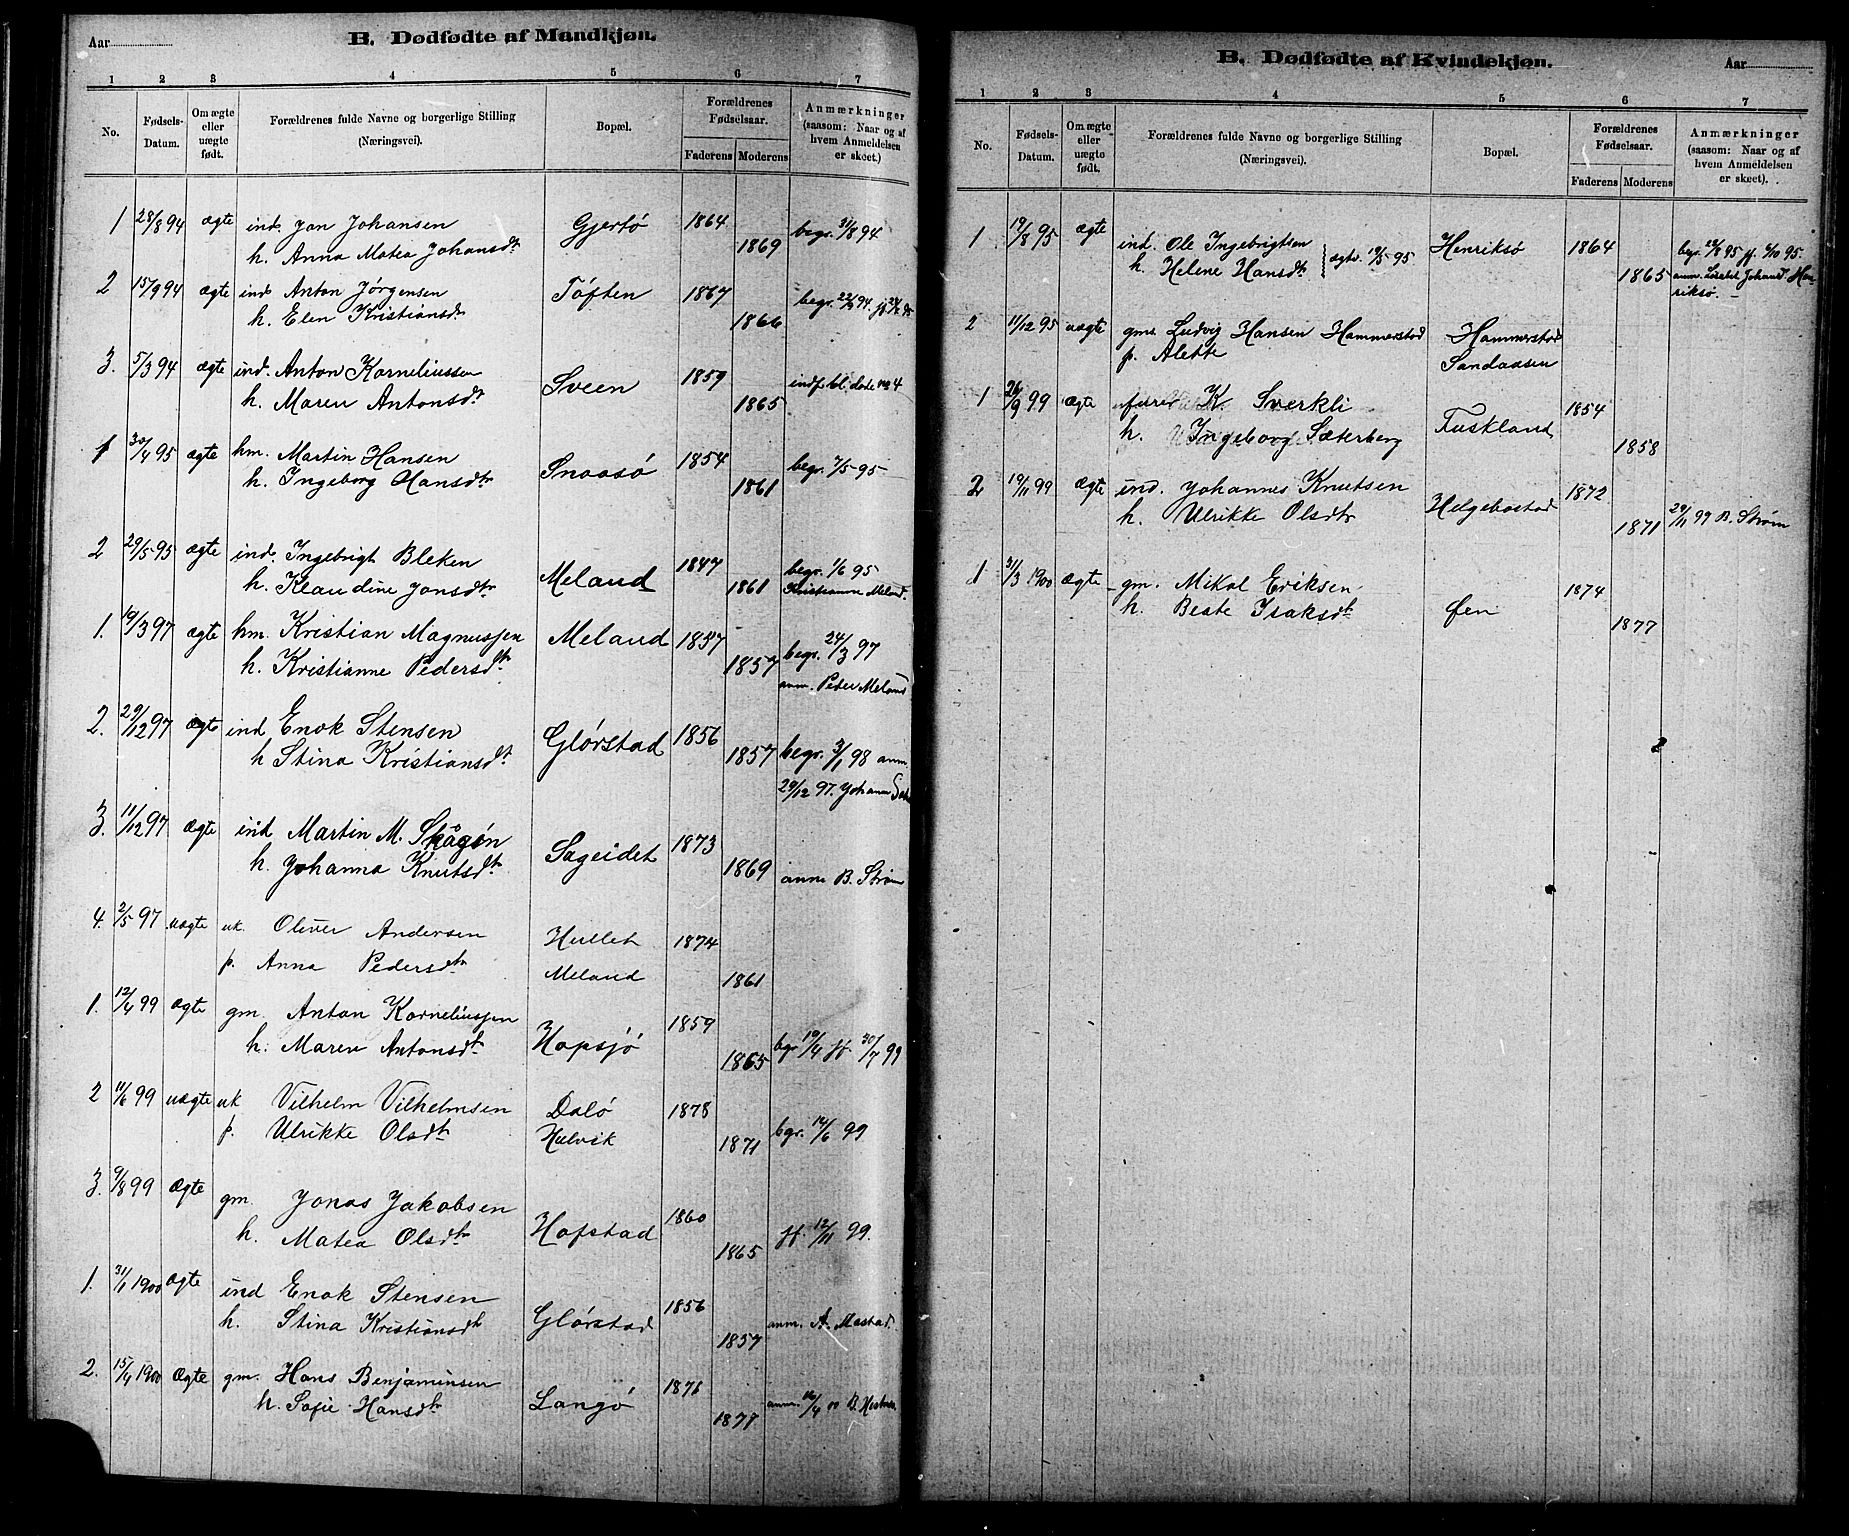 Aar
B. Dødfødte af Mandkjøn.
1 2 3 4 5 6 7
No.
Fødsels-Datum.
Om ægte eller uægte født.
Forældrenes fulde Navne og borgerlige Stilling
(Næringsvei).
Bopæl.
Forældrenes Fødselsaar.
Faderens Moderens
Anmærkninger (saasom: Naar og af hvem Anmeldelsen er skeet.)
1 28/8 94 ægte ind. Jon Johansen Gjertø 1864 begr. 31/8 94
h. Anna Matea Johansdtr 1869
2 15/9 94 ægte ind. Anton Jørgensen Tøften 1867 begr. 22/9 94.
h. Elen Kristiansdr 1866
3. 5/3 94 ægte ind. Anton Korneliussen Sveen 1859 indf. bl. døde no 4
h. Maren Antonsdtr 1865
1 30/4 95 ægte hm. Martin Hansen Snaasø 1854 begr. 7/5 95
h. Ingeborg Hansdtr 1861
2 29/5 95 ægte ind. Ingebrigt Bleken Meland 1847 begr. 1/6 95
h. Klaudine Jonsdtr 1861 Kristianne Meland.
1. 19/3 97 ægte hm. Kristian Magnussen Meland 1857 begr. 24/3 97
h. Kristianne Pedersdtr 1857 anm. Peder Meland
2. 29/12 97 ægte ind Enok Stensen Glørstad 1856 begr. 3/1 98 anm.
h Stina Kristiansdtr 1857 29/12 97. Johan
3. 11/12 97 ægte ind Martin M. Skågøn Sageidet 1873
h. Johanna Knutsdtr 1869 anm B. Strøm
4. 2/5 97 uægte uk. Oliver Andersen Hullet 1874
p. Anna Pedersdtr Meland 1861
1. 12/4 99 ægte gm. Anton Korneliussen Hopsjø 1859
h. Maren Antonsdtr 1865 bgr 19/4 jf. 30/7 99
2 11/6 99 uægte uk Vilhelm Vilhelmsen Dalø 1878
p. Ulrikke Olsdtr Hulvik 1871 bgr. 14/6 99
3. 9/8 99 Ægte gm. Jonas Jakobsen Hofstad 1860
h. Matea Olsdtr 1865 jf. 12/11 99.
1. 31/1 1900 ægte ind Enok Stensen Glørstad 1856
h. Stina Kristiansdtr 1857 anm. A. Mastad.
2. 15/4 1900 Ægte gm. Hans Benjaminsen Langø 1871
h. Sofie Hansdtr 1877 anm. 16/4 00 B.
B. Dødfødte af Kvindekjøn.
Aar
1 2 3 4 5 6 7
No.
Fødsels-Datum.
Om ægte eller uægte født.
Forældrenes fulde Navne og borgerlige Stilling
(Næringsvei).
Bopæl.
Forældrenes Fødselsaar.
Faderens Moderens
Anmærkninger (saasom: Naar og af hvem Anmeldelsen er skeet).
1 19/8 95 ægte ind. Ole Ingebrigtsen Henriksø 1864
h. Helene Hansdtr ægtv. 19/5 95 1865
anm. Johansd. Henriksø.
2 11/12 95 uægte gms. Ludvig Hansen Hammerstad Hammerstad
p. Alette Sandaasen
1 26/9 99 ægte K. Sværkli Fuskland 1854
h. Ingeborg Sæterberg 1858
2 19/11 99 ægte ind. Johannes Knutsen Helgebostad 1872
h. Ulrikke Olsdtr 1871 29/11 99 B. Strøm
1 31/3 1900 ægte gm. Mikal Eriksen Øen 1874
h. Beate Isaksdtr 1877